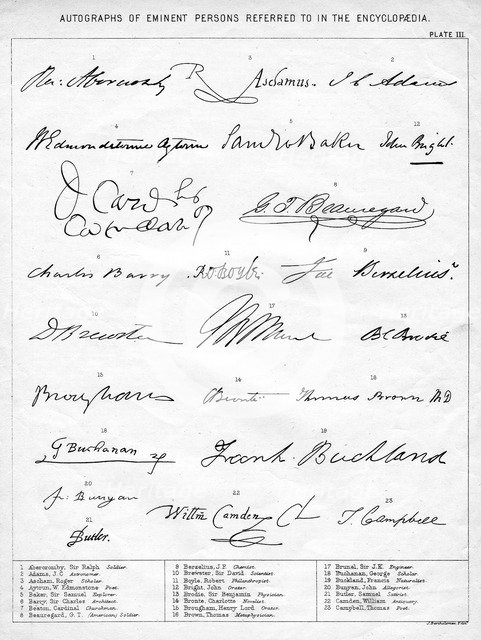 AUTOGRAPHS OF EMINENT PERSONS REFERRED TO IN THE ENCYCLOPÆDIA.
PLATE III.
1 3 2
Ra: Abercromby R Aschamus. J C Adams
4 5 12
W Edmondstoune Aytoun Saml W Baker John Bright.
7 8
J Card G. T. Beauregard
6 11 9
Charles Barry. Ro Boyle. Jac Berzelius
10 17 13
D Brewster Brunel B C Brodie
15 14 16
Brougham Brontë Thomas Brown MD
18 19
G Buchanan Frank. Buckland
20 22 23
Jo: Bunyan Willm Camden Cl T. Campbell
21
Butler.
1 Abercromby, Sir Ralph Soldier
2 Adams, J.C. Astronomer.
3 Ascham, Roger Scholar.
4 Aytoun, W. Edmondstoune Poet.
5 Baker, Sir Samuel Explorer.
6 Barry, Sir Charles Architect.
7 Beaton, Cardinal Churchman.
8 Beauregard, G.T. (American) Soldier.
9 Berzelius, J.E. Chemist.
10 Brewster, Sir David Scientist.
11 Boyle, Robert Philanthropist.
12 Bright, John Orator.
13 Brodie, Sir Benjamin Physician.
14 Bronte, Charlotte Novelist.
15 Brougham, Henry Lord Orator.
16 Brown, Thomas Metaphysician.
17 Brunel, Sir J.K. Engineer.
18 Buchanan, George Scholar.
19 Buckland, Francis Naturalist.
20 Bunyan, John Allegorist.
21 Butler, Samuel Satirist.
22 Camden, William Antiquary.
23 Campbell, Thomas Poet.
J. Bartholomew, Edinr.